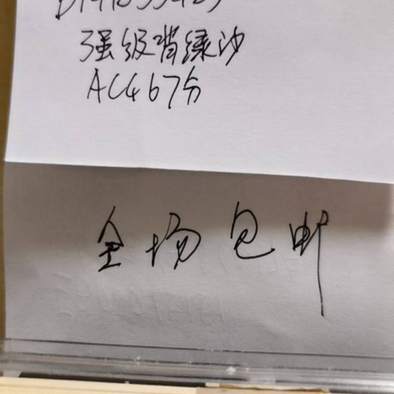 强级背绿沙
ACG67分
全场包邮